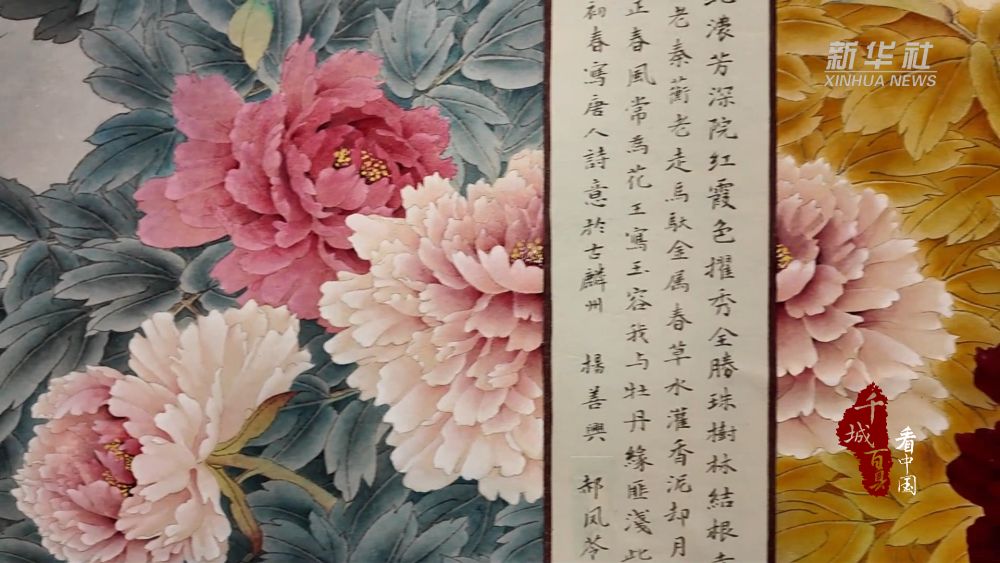 新华社
XINHUA NEWS
濃芳深院红霞色擢秀全勝珠樹林結根
老秦蘅老走馬馱金属春草水灌香泥却月
正春風常為花王寫玉容我与牡丹緣匪淺此
初春寫唐人詩意於古麟州 楊善興 郝凤苓
千城百县
看中国